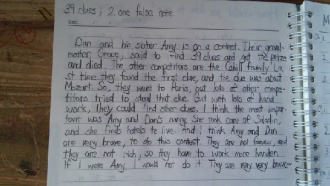 39 clues; 2. one false note
Dan and his sister Amy is on a contest. Their grand-
mother, Grace, said to find 39 clues and get the prizes
and died. The other competitors are the Cahill family. La
st time they found the first clue, and the clue was about
Mozart. So, they went to Paris, but lots of other compe-
titions tried to steal that clue. But with lots of hard
work, They could find other clues. I think the most impor
tant was Amy and Dan's nanny. She took care of Saladin,
and she finds hotels to live. And I think Amy and Dan
are very brave, to do this contest. They are not famous, and
they are not rich, so they have to work more harder.
If I were Amy, I would not do it. They are very very brave